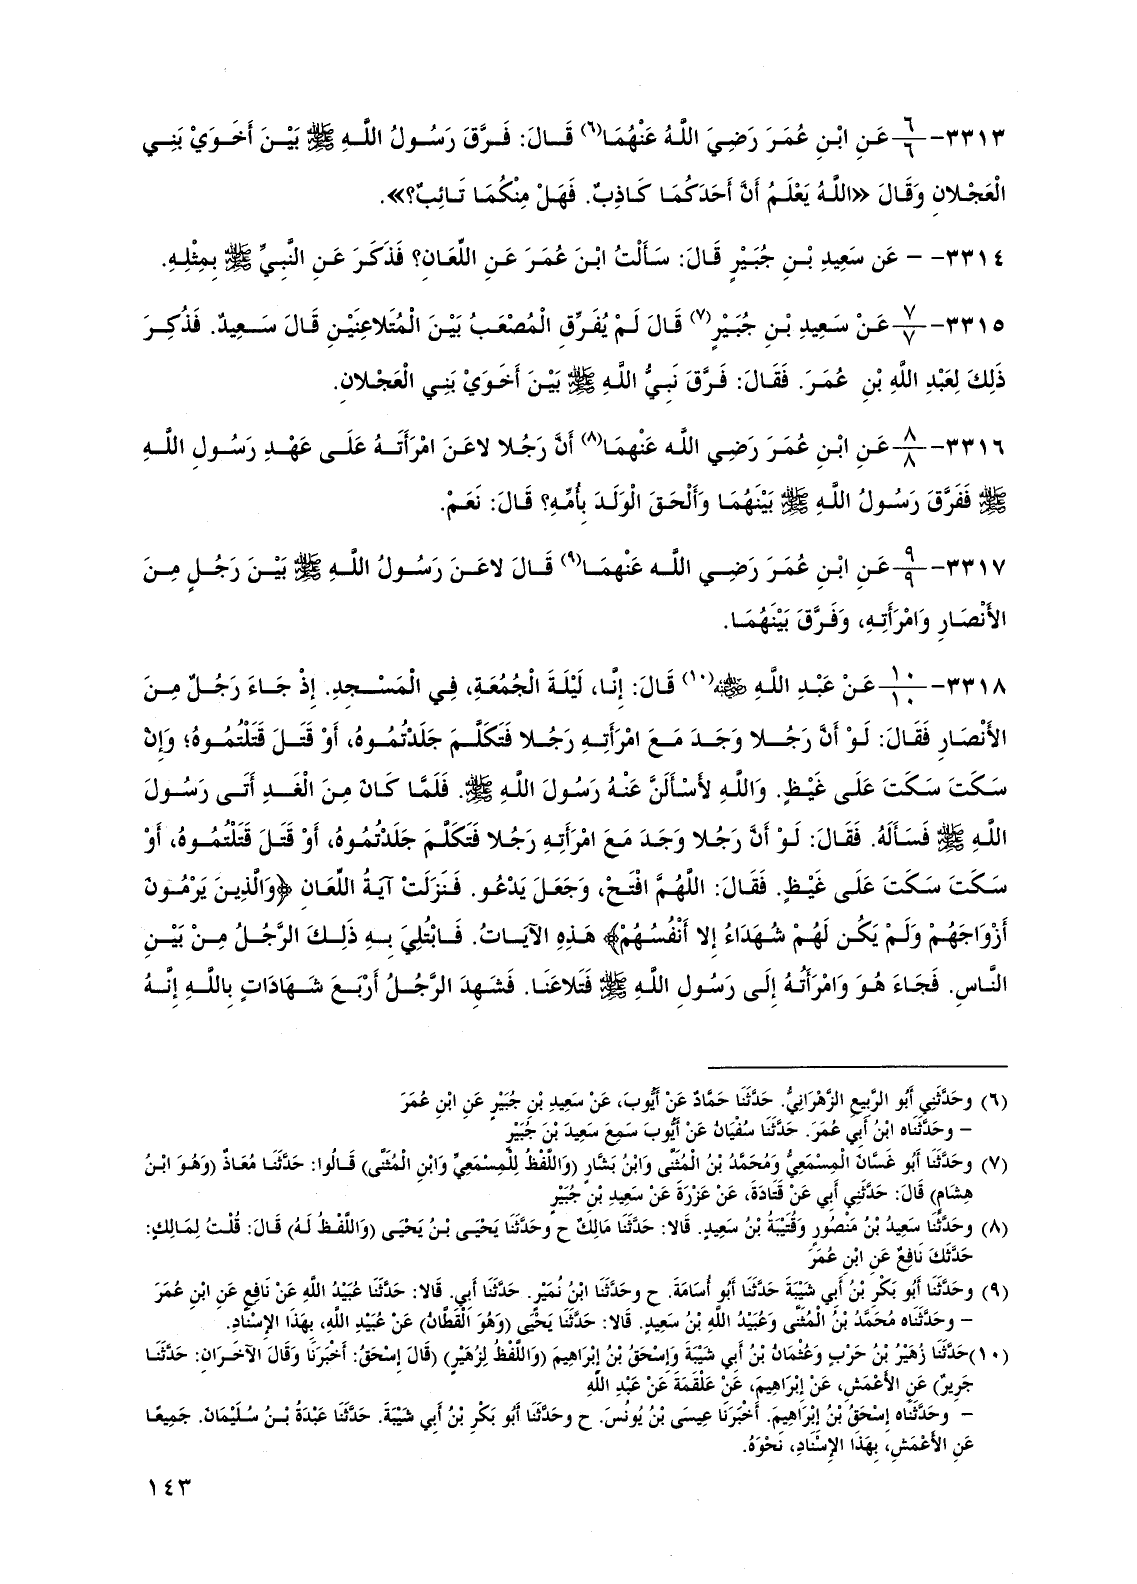 ٣٣١٣- ٦/٦ عَنِ ابْنِ عُمَرَ رَضِيَ اللَّهُ عَنْهُمَا(٦) قَالَ: فَرَّقَ رَسُولُ اللَّهِ ﷺ بَيْنَ أَخَوَيْ بَنِي
الْعَجْلانِ وَقَالَ «اللَّهُ يَعْلَمُ أَنَّ أَحَدَكُمَا كَاذِبٌ. فَهَلْ مِنْكُمَا تَائِبٌ؟».
٣٣١٤- – عَن سَعِيدِ بْنِ جُبَيْرٍ قَالَ: سَأَلْتُ ابْنَ عُمَرَ عَنِ اللِّعَانِ؟ فَذَكَرَ عَنِ النَّبِيِّ ﷺ بِمِثْلِهِ.
٣٣١٥- ٧/٧ عَنْ سَعِيدِ بْنِ جُبَيْرٍ(٧) قَالَ لَمْ يُفَرِّقِ الْمُصْعَبُ بَيْنَ الْمُتَلاعِنَيْنِ قَالَ سَعِيدٌ. فَذُكِرَ
ذَلِكَ لِعَبْدِ اللَّهِ بْنِ عُمَرَ. فَقَالَ: فَرَّقَ نَبِيُّ اللَّهِ ﷺ بَيْنَ أَخَوَيْ بَنِي الْعَجْلانِ.
٣٣١٦- ٨/٨ عَنِ ابْنِ عُمَرَ رَضِي اللَّه عَنْهمَا(٨) أَنَّ رَجُلا لاعَنَ امْرَأَتَهُ عَلَى عَهْدِ رَسُولِ اللَّهِ
ﷺ فَفَرَّقَ رَسُولُ اللَّهِ ﷺ بَيْنَهُمَا وَأَلْحَقَ الْوَلَدَ بِأُمِّهِ؟ قَالَ: نَعَمْ.
٣٣١٧- ٩/٩ عَنِ ابْنِ عُمَرَ رَضِي اللَّه عَنْهمَا(٩) قَالَ لاعَنَ رَسُولُ اللَّهِ ﷺ بَيْنَ رَجُلٍ مِنَ
الأَنْصَارِ وَامْرَأَتِهِ، وَفَرَّقَ بَيْنَهُمَا.
٣٣١٨- ١٠/١٠ عَنْ عَبْدِ اللَّهِ ﵁(١٠) قَالَ: إِنَّا، لَيْلَةَ الْجُمُعَةِ، فِي الْمَسْجِدِ. إِذْ جَاءَ رَجُلٌ مِنَ
الأَنْصَارِ فَقَالَ: لَوْ أَنَّ رَجُلا وَجَدَ مَعَ امْرَأَتِهِ رَجُلا فَتَكَلَّمَ جَلَدْتُمُوهُ، أَوْ قَتَلَ قَتَلْتُمُوهُ؛ وَإِنْ
سَكَتَ سَكَتَ عَلَى غَيْظٍ. وَاللَّهِ لأَسْأَلَنَّ عَنْهُ رَسُولَ اللَّهِ ﷺ. فَلَمَّا كَانَ مِنَ الْغَدِ أَتَى رَسُولَ
اللَّهِ ﷺ فَسَأَلَهُ. فَقَالَ: لَوْ أَنَّ رَجُلا وَجَدَ مَعَ امْرَأَتِهِ رَجُلا فَتَكَلَّمَ جَلَدْتُمُوهُ، أَوْ قَتَلَ قَتَلْتُمُوهُ، أَوْ
سَكَتَ سَكَتَ عَلَى غَيْظٍ. فَقَالَ: اللَّهُمَّ افْتَحْ، وَجَعَلَ يَدْعُو. فَنَزَلَتْ آيَةُ اللِّعَانِ ﴿وَالَّذِينَ يَرْمُونَ
أَزْوَاجَهُمْ وَلَمْ يَكُن لَهُمْ شُهَدَاءُ إِلا أَنْفُسُهُمْ﴾ هَذِهِ الآيَاتُ. فَابْتُلِيَ بِهِ ذَلِكَ الرَّجُلُ مِنْ بَيْنِ
النَّاسِ. فَجَاءَ هُوَ وَامْرَأَتُهُ إِلَى رَسُولِ اللَّهِ ﷺ فَتَلاعَنَا. فَشَهِدَ الرَّجُلُ أَرْبَعَ شَهَادَاتٍ بِاللَّهِ إِنَّهُ
(٦) وحَدَّثَنِي أَبُو الرَّبِيعِ الزَّهْرَانِيُّ. حَدَّثَنَا حَمَّادٌ عَنْ أَيُّوبَ، عَنْ سَعِيدِ بْنِ جُبَيْرٍ عَنِ ابْنِ عُمَرَ
– وحَدَّثَنَاه ابْنُ أَبِي عُمَرَ. حَدَّثَنَا سُفْيَانُ عَنْ أَيُّوبَ سَمِعَ سَعِيدَ بْنَ جُبَيْرٍ
(٧) وحَدَّثَنَا أَبُو غَسَّانَ الْمِسْمَعِيُّ وَمُحَمَّدُ بْنُ الْمُثَنَّى وَابْنُ بَشَّارٍ (وَاللَّفْظُ لِلْمِسْمَعِيِّ وَابْنِ الْمُثَنَّى) قَالُوا: حَدَّثَنَا مُعَاذٌ (وَهُوَ ابْنُ
هِشَامٍ) قَالَ: حَدَّثَنِي أَبِي عَنْ قَتَادَةَ، عَنْ عَزْرَةَ عَنْ سَعِيدِ بْنِ جُبَيْرٍ
(٨) وحَدَّثَنَا سَعِيدُ بْنُ مَنْصُورٍ وَقُتَيْبَةُ بْنُ سَعِيدٍ. قَالا: حَدَّثَنَا مَالِكٌ ح وحَدَّثَنَا يَحْيَى بْنُ يَحْيَى (وَاللَّفْظُ لَهُ) قَالَ: قُلْتُ لِمَالِكٍ:
حَدَّثَكَ نَافِعٌ عَنِ ابْنِ عُمَرَ
(٩) وحَدَّثَنَا أَبُو بَكْرِ بْنُ أَبِي شَيْبَةَ حَدَّثَنَا أَبُو أُسَامَةَ. ح وحَدَّثَنَا ابْنُ نُمَيْرٍ. حَدَّثَنَا أَبِي. قَالا: حَدَّثَنَا عُبَيْدُ اللَّهِ عَنْ نَافِعٍ عَنِ ابْنِ عُمَرَ
– وحَدَّثَنَاه مُحَمَّدُ بْنُ الْمُثَنَّى وَعُبَيْدُ اللَّهِ بْنُ سَعِيدٍ. قَالا: حَدَّثَنَا يَحْيَى (وَهُوَ الْقَطَّانُ) عَنْ عُبَيْدِ اللَّهِ، بِهَذَا الإِسْنَادِ.
(١٠)حَدَّثَنَا زُهَيْرُ بْنُ حَرْبٍ وَعُثْمَانُ بْنُ أَبِي شَيْبَةَ وَإِسْحَقُ بْنُ إِبْرَاهِيمَ (وَاللَّفْظُ لِزُهَيْرٍ) (قَالَ إِسْحَقُ: أَخْبَرَنَا وَقَالَ الآخَرَانِ: حَدَّثَنَا
جَرِيرٌ) عَنِ الأَعْمَشِ، عَنْ إِبْرَاهِيمَ، عَنْ عَلْقَمَةَ عَنْ عَبْدِ اللَّهِ
– وحَدَّثَنَاه إِسْحَقُ بْنُ إِبْرَاهِيمَ. أَخْبَرَنَا عِيسَى بْنُ يُونُسَ. ح وحَدَّثَنَا أَبُو بَكْرِ بْنُ أَبِي شَيْبَةَ. حَدَّثَنَا عَبْدَةُ بْنُ سُلَيْمَانَ. جَمِيعًا
عَنِ الأَعْمَشِ، بِهَذَا الإِسْنَادِ، نَحْوَهُ.
١٤٣